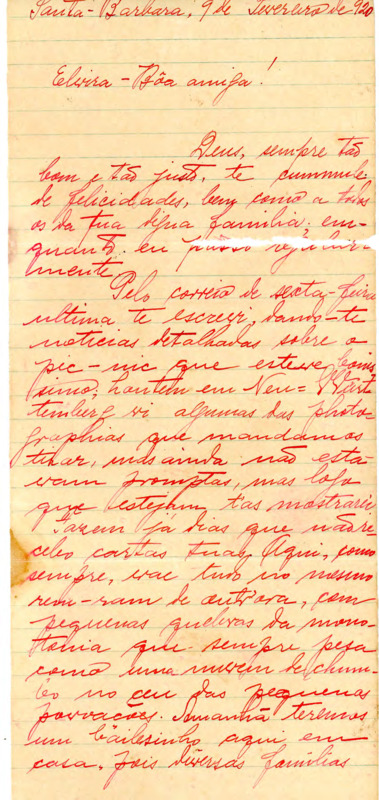 Santa-Barbara, 9 de Fevereiro de 920
Elvira - Bôa amiga!
Deus, sempre tão
bom e tão justo, te cummule
de felicidades, bem como a todos
os da tua digna familia; em-
quanto eu passo regular-
mente.
Pelo correio de sexta-feira
ultima te escrevi, dando-te
noticias detalhadas sobre o
pic-nic que esteve bonis
simo, hontem em Neu=Würt
temberg vi algumas das photo-
graphias que mandamos
tirar, mas ainda não esta-
vam promptas, mas logo
que estejam t'as mostrarei
Fazem já dias que não re-
cebo cartas tuas. Aqui, como
sempre, vae tudo no mesmo
rem-ram de outr'ora, com
pequenas quebras da mono-
tonia que sempre pesa
como uma nuvem de chum-
bo no ceu das pequenas
povoações. Amanhã teremos
um bailesinho aqui em
casa, pois diversas familias